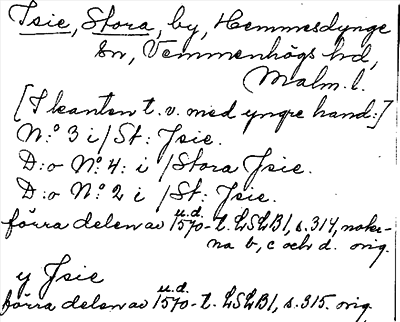 Isie, Stora, by, Hemmesdynge
sn, Vemmenhögs hd,
Malm. l.
[I kanten t. v. med yngre hand:]
N:o 3 i / St: Isie.
D:o No: 4: i / Stora Isie.
D:o N:o 2 i / St: Isie.
förra delen av u.d. 1570-t. LSLB1, s. 314, noter-
na b, c och d. orig.
y Isie
förra delen av u.d. 1570-t. LSLB1, s. 315. orig.